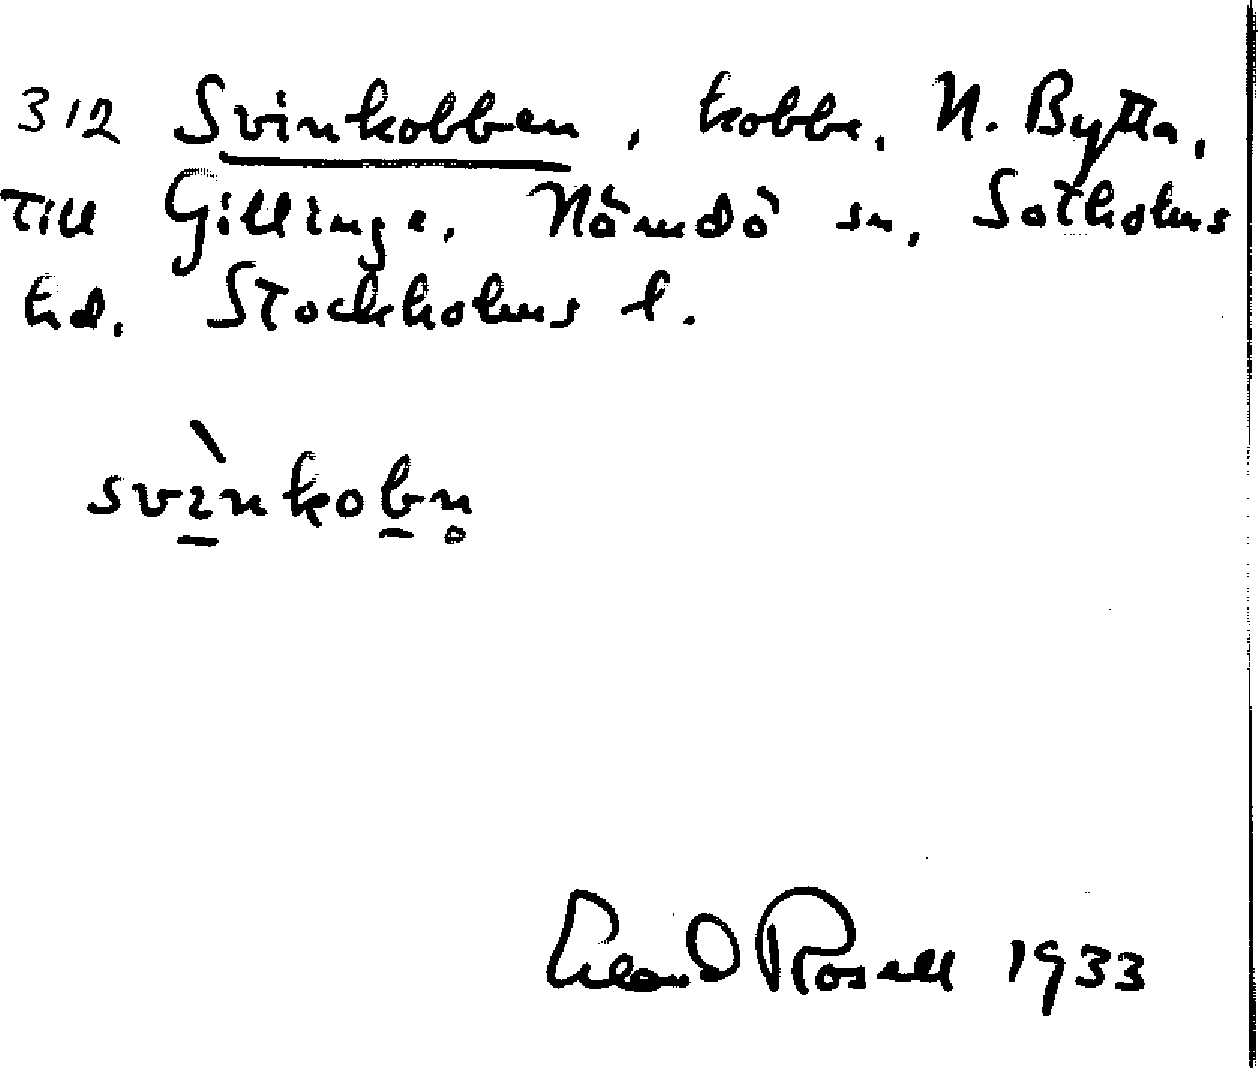 312 Svinkobben, kobbe. N. Bytta,
till Gillinge. Nämdö sn, Sotholms
hd. Stockholms l.
svı̀nkobn̥
Erland Rosell 1933